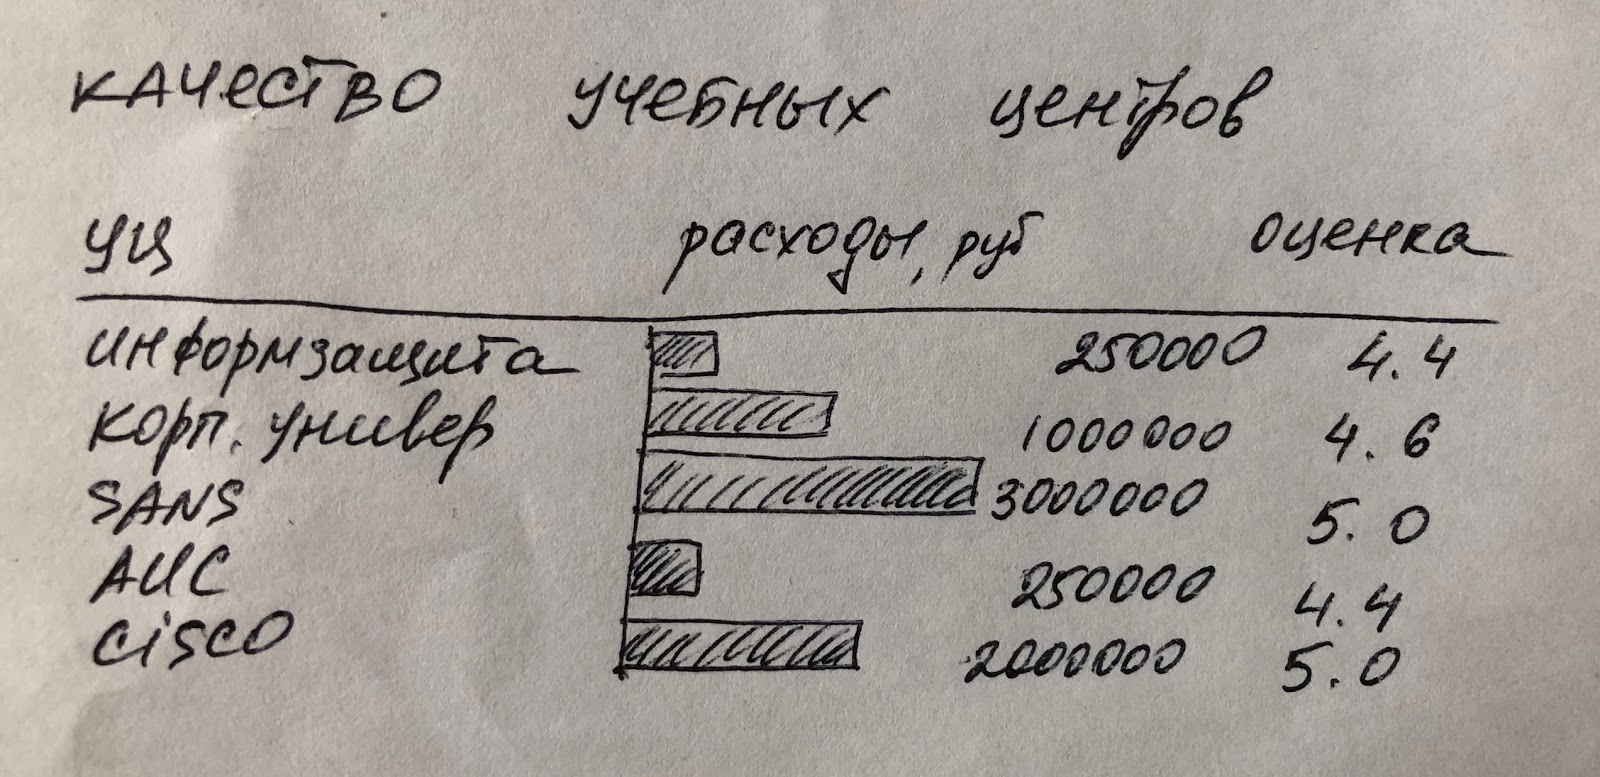 КАЧЕСТВО УЧЕБНЫХ ЦЕНТРОВ
УЦ расходы, руб оценка
информзащита 250000 4.4
корп. универ 1000000 4.6
SANS 3000000 5.0
АИС 250000 4.4
cisco 2000000 5.0